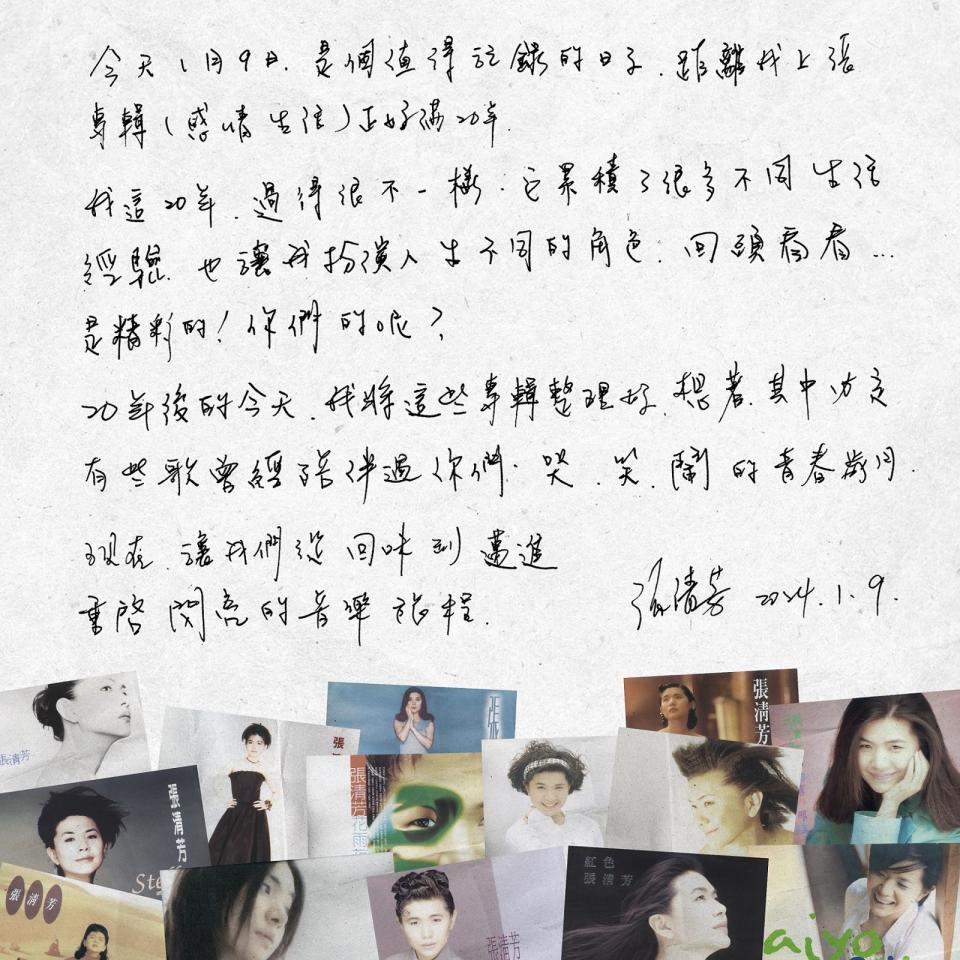 今天1月9日.是個值得記錄的日子.距離我上張
專輯(感情生活)正好滿20年.
我這20年.過得很不一樣.它累積了很多不同生活
經驗.也讓我扮演人生不同的角色.回頭看看...
是精彩的!你們的呢?
20年後的今天.我將這些專輯整理好.想著.其中必定
有些歌曾經陪伴過你們.哭.笑.鬧的青春歲月.
現在.讓我們從回味到邁進
重啓閃亮的音樂旅程.
張清芳 2024.1.9.
張清芳
張
張
張清芳
張清芳
張清芳
張清芳
花雨
Ste
張清芳
張清芳
紅色
張清芳
aiyo